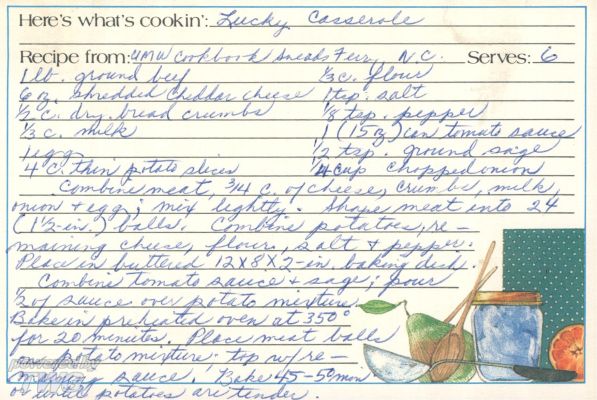 Here's what's cookin': Lucky Casserole
Recipe from: UMW Cookbook Sneads Ferry, N.C. Serves: 6
1 lb. ground beef ⅓ c. flour
6 oz. shredded Cheddar cheese 1 tsp. salt
½ c. dry bread crumbs ⅛ tsp. pepper
⅓ c. milk 1 (15 oz) can tomato sauce
1 egg ½ tsp. ground sage
4 c. thin potato slices ¼ cup chopped onion
Combine meat, ¾ c. of cheese, crumbs, milk,
onion + egg; mix lightly. Shape meat into 24
(1½-in.) balls. Combine potatoes, re-
maining cheese, flour, salt + pepper.
Place in buttered 12x8x2-in. baking dish.
Combine tomato sauce + sage; pour
½ of sauce over potato mixture.
Bake in preheated oven at 350°
for 20 minutes. Place meat balls
on potato mixture. top w/re-
maining sauce. Bake 45-50 min
or until potatoes are tender.
powered by